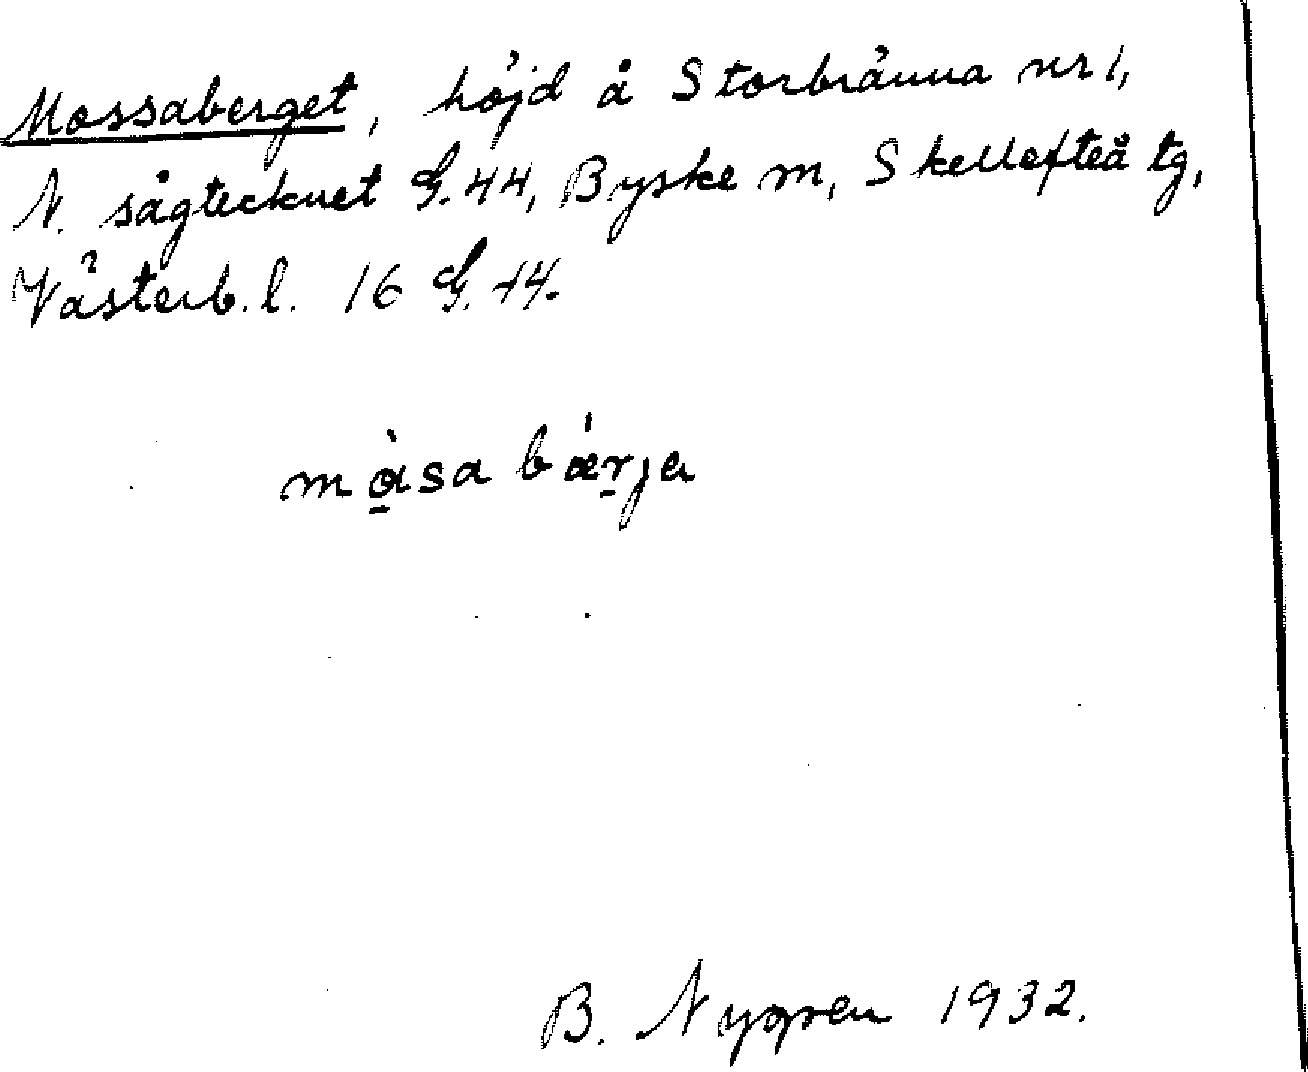 Mossaberget, höjd å Storbränna nr 1,
N. sågtecknet G. 44, Byske m, Skellefteå tg,
Västerb. l. 16 G. 44.
må̀sa bǽrja
B. Nygren 1932.